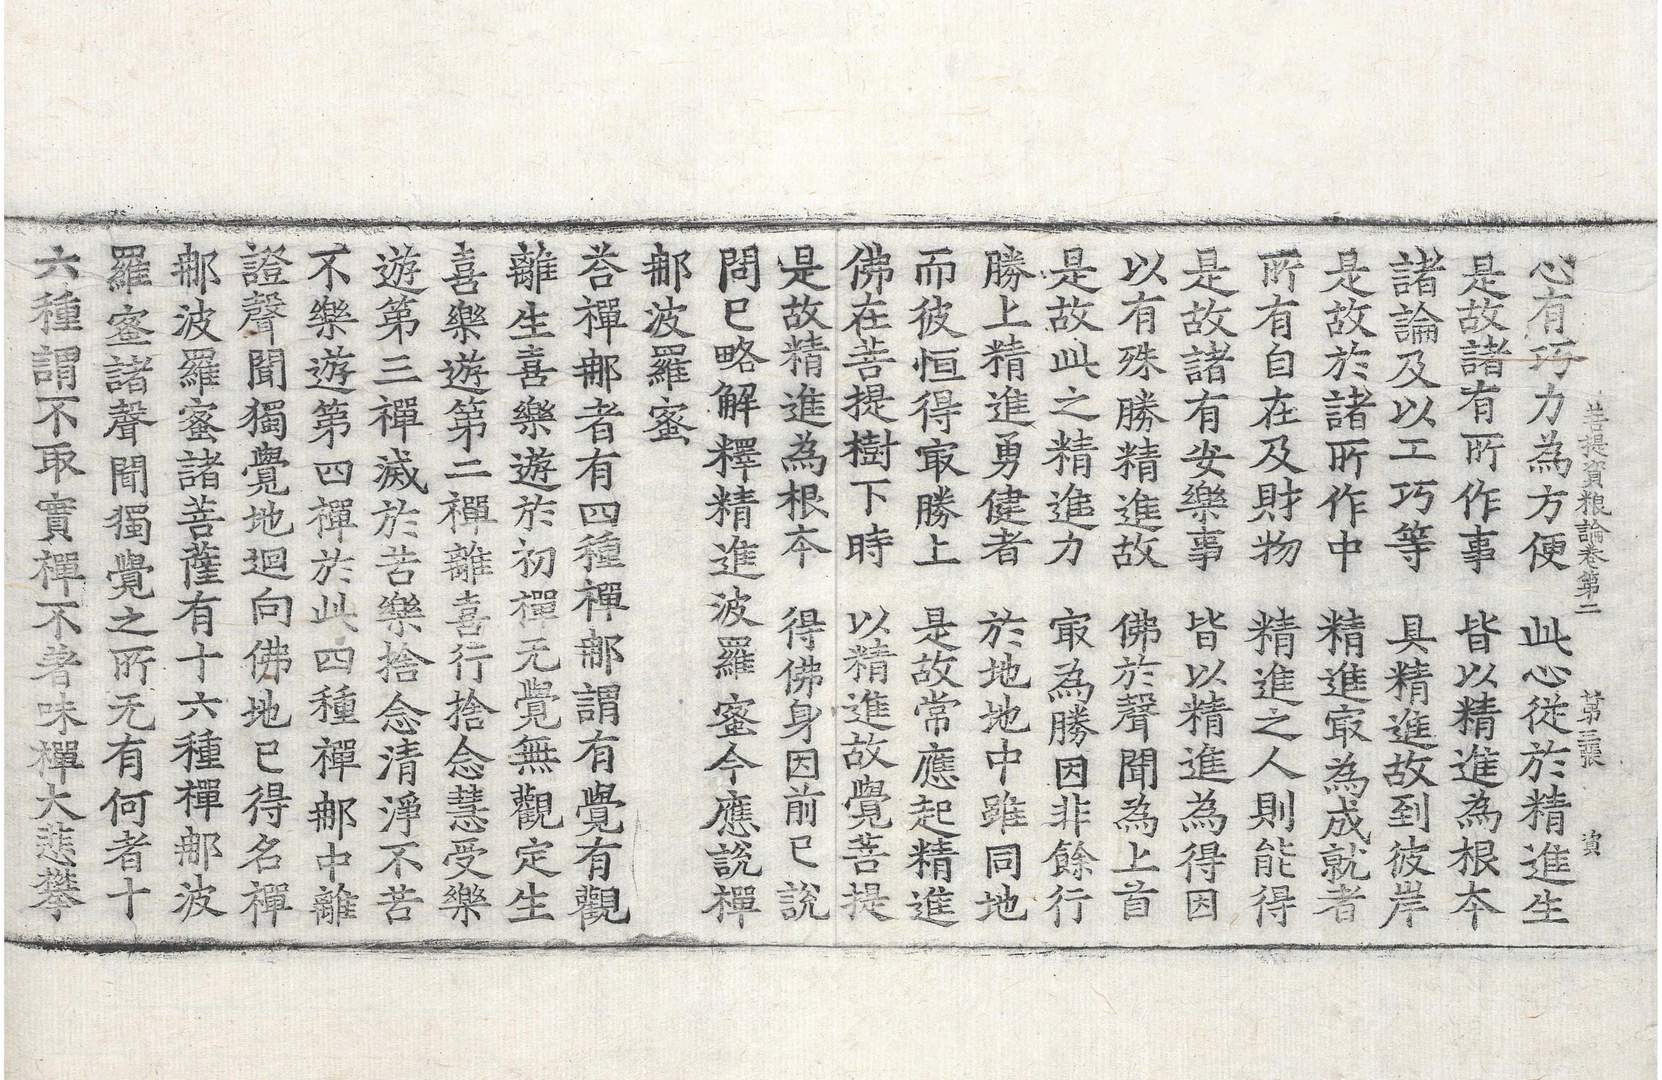 菩提資粮論卷第二 第三張 資
心有巧力為方便 此心従於精進生
是故諸有所作事 皆以精進為根夲
諸論及以工巧等 具精進故到彼岸
是故於諸所作中 精進冣為成就者
所有自在及財物 精進之人則能得
是故諸有安樂事 皆以精進為得因
以有殊勝精進故 佛於聲聞為上首
是故此之精進力 冣為勝因非餘行
勝上精進勇健者 於地地中雖同地
而彼恒得冣勝上 是故常應起精進
佛在菩提樹下時 以精進故覺菩提
是故精進為根夲 得佛身因前已說
問已略解釋精進波羅蜜今應說禪
那波羅蜜
荅禪那者有四種禪那謂有覺有觀
離生喜樂遊於初禪无覺無觀定生
喜樂遊第二禪離喜行捨念慧受樂
遊第三禪滅於苦樂捨念清淨不苦
不樂遊第四禪於此四種禪那中離
證聲聞獨覺地迴向佛地已得名禪
那波羅蜜諸菩薩有十六種禪那波
羅蜜諸聲聞獨覺之所无有何者十
六種謂不取實禪不著味禪大悲攀